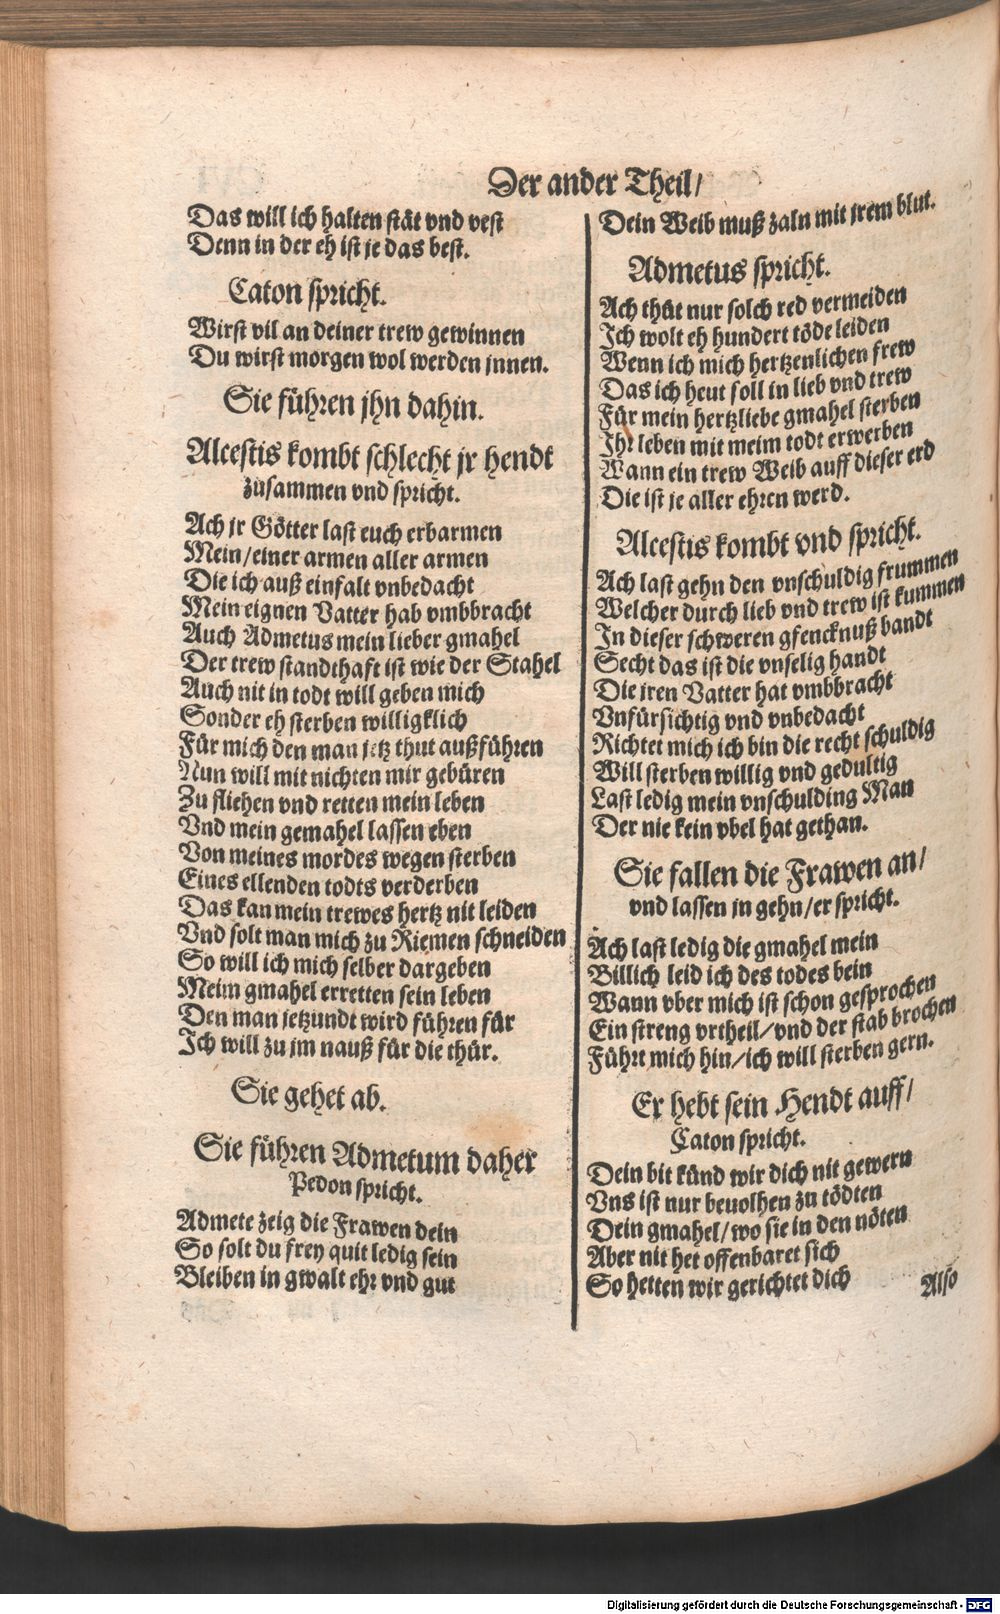 Der ander Theil/
Das will ich halten stät vnd vest
Denn in der eh ist je das best.
Caton spricht.
Wirst vil an deiner trew gewinnen
Du wirst morgen wol werden jnnen.
Sie führen jhn dahin.
Alcestis kombt schlecht jr hendt
zusammen vnd spricht.
Ach jr Götter last euch erbarmen
Mein/einer armen aller armen
Die ich auß einfalt vnbedacht
Mein eignen Vatter hab vmbbracht
Auch Admetus mein lieber gmahel
Der trew standthaft ist wie der Stahel
Auch nit in todt will geben mich
Sonder eh sterben willigklich
Für mich den man jetz thut außführen
Nun will mit nichten mir gebüren
Zu fliehen vnd retten mein leben
Vnd mein gemahel lassen eben
Von meines mordes wegen sterben
Eines ellenden todts verderben
Das kan mein trewes hertz nit leiden
Vnd solt man mich zu Riemen schneiden
So will ich mich selber dargeben
Meim gmahel erretten sein leben
Den man jetzundt wird führen für
Ich will zu jm nauß für die thür.
Sie gehet ab.
Sie führen Admetum daher
Pedon spricht.
Admete zeig die Frawen dein
So solt du frey quit ledig sein
Bleiben in gwalt ehr vnd gut
Dein Weib muß zaln mit jrem blut.
Admetus spricht.
Ach thüt nur solch red vermeiden
Ich wolt eh hundert töde leiden
Wenn ich mich hertzenlichen frew
Das ich heut soll in lieb vnd trew
Für mein hertzliebe gmahel sterben
Ihr leben mit meim todt erwerben
Wann ein trew Weib auff dieser erd
Die ist je aller ehren werd.
Alcestis kombt vnd spricht.
Ach last gehn den vnschuldig frummen
Welcher durch lieb vnd trew ist kummen
In dieser schweren gfencknuß bandt
Secht das ist die vnselig handt
Die jren Vatter hat vmbbracht
Vnfürsichtig vnd vnbedacht
Richtet mich ich bin die recht schuldig
Will sterben willig vnd gedultig
Last ledig mein vnschulding Man
Der nie kein vbel hat gethan.
Sie fallen die Frawen an/
vnd lassen jn gehn/er spricht.
Ach last ledig die gmahel mein
Billich leid ich des todes bein
Wann vber mich ist schon gesprochen
Ein streng vrtheil/vnd der stab brochen
Führt mich hin/ich will sterben gern.
Er hebt sein Hendt auff/
Caton spricht.
Dein bit künd wir dich nit gewern
Vns ist nur beuolhen zu tödten
Dein gmahel/wo sie in den nöten
Aber nit het offenbaret sich
So hetten wir gerichtet dich
Also
Digitalisierung gefördert durch die Deutsche Forschungsgemeinschaft - DFG